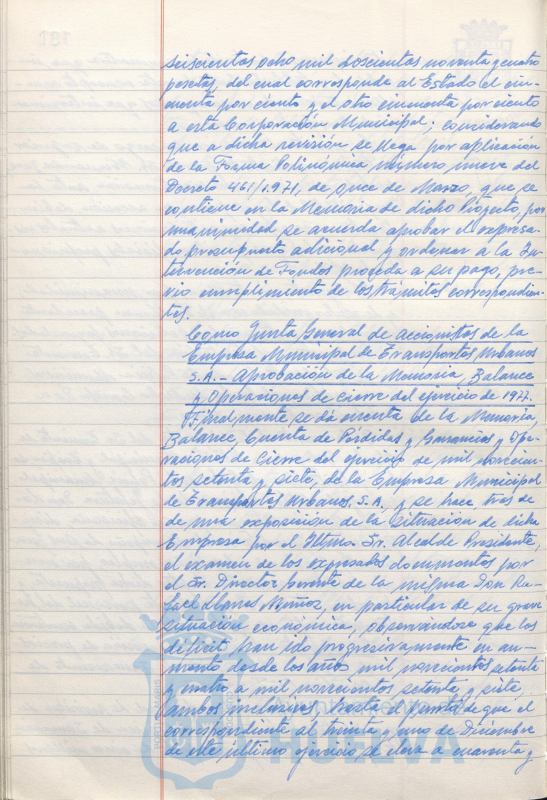 seiscientas ocho mil doscientas noventa y cuatro
pesetas, del cual corresponde al Estado el cin-
cuenta por ciento y el otro cincuenta por ciento
a esta Corporación Municipal; considerando
que a dicha revisión se llega por aplicación
de la Forma Polinómica número nueve del
Decreto 461/1.971, de once de Marzo, que se
contiene en la Memoria de dicho Proyecto, por
unanimidad se acuerda aprobar el expresa-
do presupuesto adicional y ordenar a la In-
tervención de Fondos proceda a su pago, pre-
vio cumplimiento de los trámites correspondien-
tes.
Como Junta General de accionistas de la
Empresa Municipal de Transportes Urbanos
S.A.- Aprobación de la Memoria, Balance
y Operaciones de Cierre del ejercicio de 1977.
Finalmente se dá cuenta de la Memoria,
Balance, Cuenta de Pérdidas y Ganancias y Ope-
raciones de Cierre del ejercicio de mil novecien-
tos setenta y siete, de la Empresa Municipal
de Transportes Urbanos, S.A., y se hace, tras de
de una exposición de la situación de dicha
Empresa por el Iltmo. Sr. Alcalde Presidente,
el examen de los expresados documentos por
el Sr. Director Gerente de la misma Don Ra-
fael Llanes Muñoz, en particular de su grave
situación económica, observándose que los
déficit han ido progresivamente en au-
mento desde los años mil novecientos setenta
y cuatro a mil novecientos setenta y siete,
ambos inclusives, hasta el punto de que el
correspondiente al treinta y uno de Diciembre
de este último ejercicio se eleva a cuarenta y
HUELVA